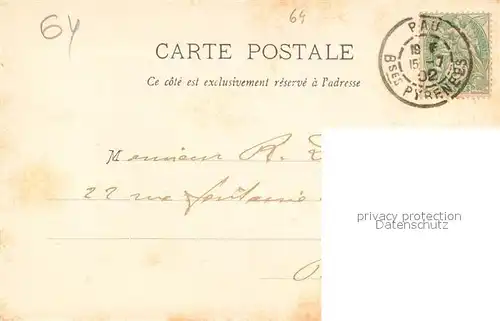 64
64
CARTE POSTALE
Ce côté est exclusivement réservé à l'adresse
PAU
15 -7
02
Bses PYRENEES
Monsieur R.
22 rue fontaine
privacy protection
Datenschutz